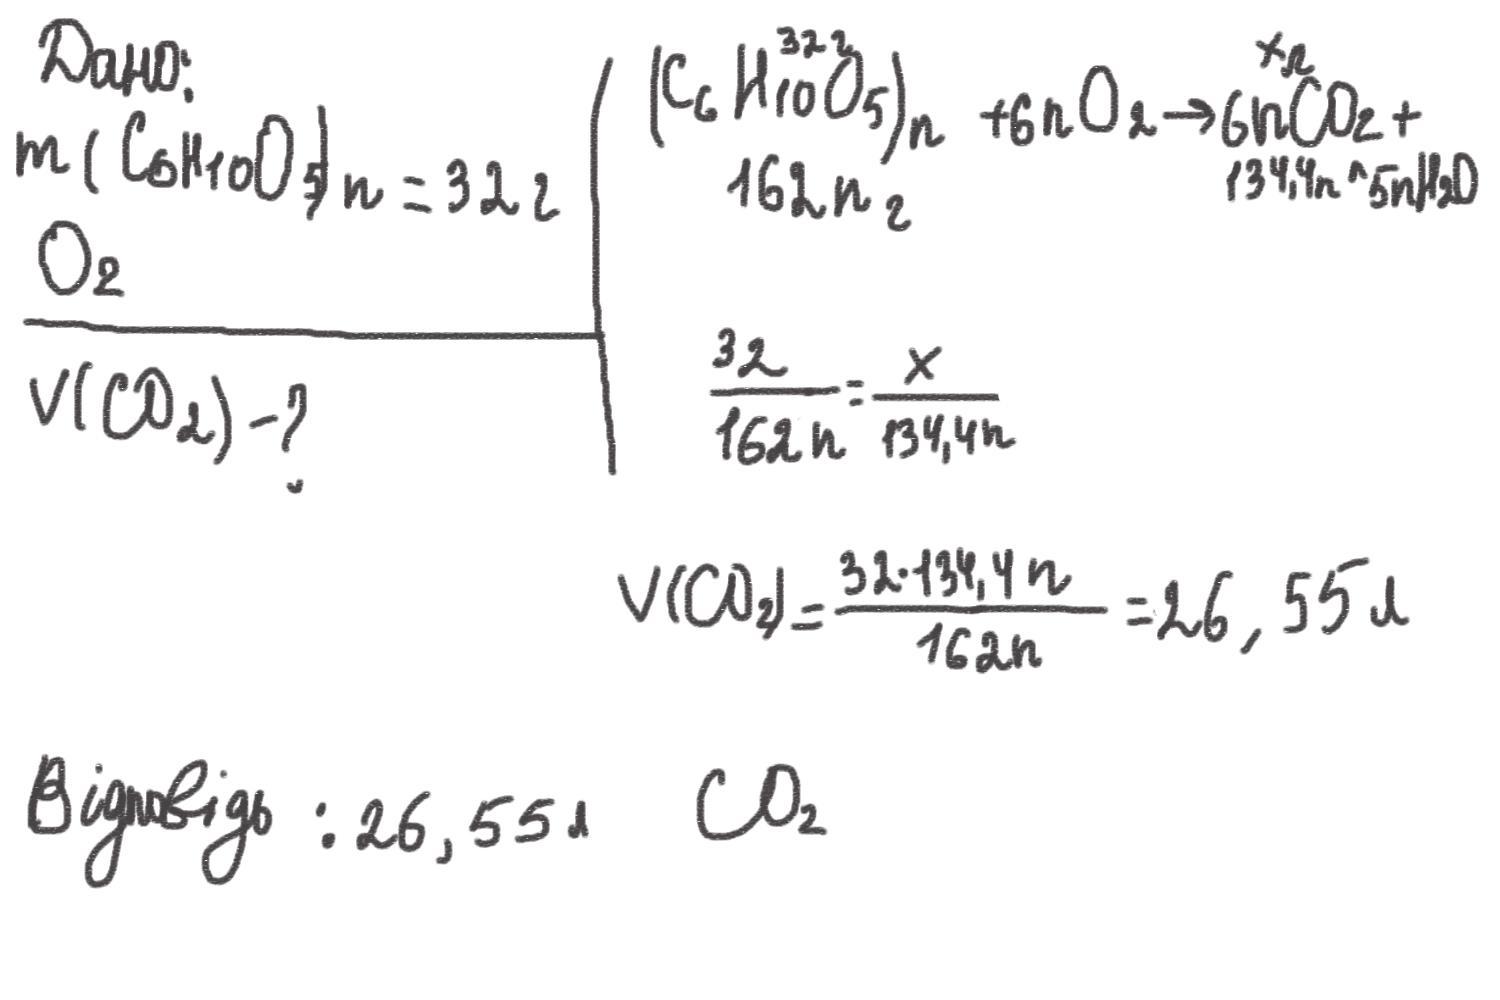 Дано:
m(C6H10O5)n = 32 г
O2
V(CO2) - ?
32 г xл
(C6H10O5)n + 6nO2 → 6nCO2 +
162n г 134,4n л 5nH2O
32/162n = x/134,4n
V(CO2) = 32·134,4n/162n = 26,55 л
Відповідь : 26,55 л CO2